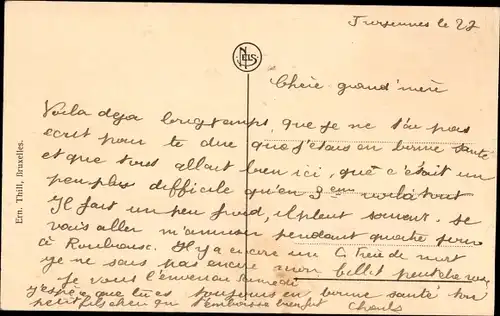 le 27
NELS
Ern. Thill, Bruxelles.
Chère grand'mère
Voila deja longtemps que je ne t'ai pas
ecrit pour te dire que j'etais en bonne santé
et que tous allait bien ici, que c'était un
peu plus difficile qu'en 3eme voila tout
Il fait un peu froid, il pleut souvent. Je
vais aller m'amuser pendant quatre jours
à Il y a encore un train de nuit
je ne sais pas encore mon billet peut être
Je vous l'enverrai
j'espère que tu es toujours en bonne santé ton
petit fils cheri qui t'embrasse bien fort Charles